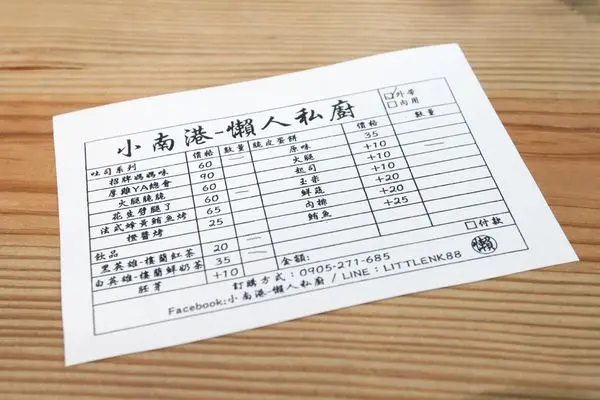 小南港-懶人私廚
外帶
內用
吐司系列 價格 數量 脆皮蛋餅 價格 數量
招牌媽媽味 60 一 原味 35
厚雞YA總會 90 火腿 +10
火腿脆脆 60 起司 +10
花生臂腿了 60 玉米 +10
法式蜂黃鮪魚烤 65 鮮蔬 +10
橙醬烤 25 肉排 +20
鮪魚 +25
飲品
黑英雄-樓蘭紅茶 20
白英雄-樓蘭鮮奶茶 35 一
胚芽 +10 金額: 付款
訂購方式:0905-271-685
Facebook:小南港-懶人私廚 / LINE: LITTLENK88
懶